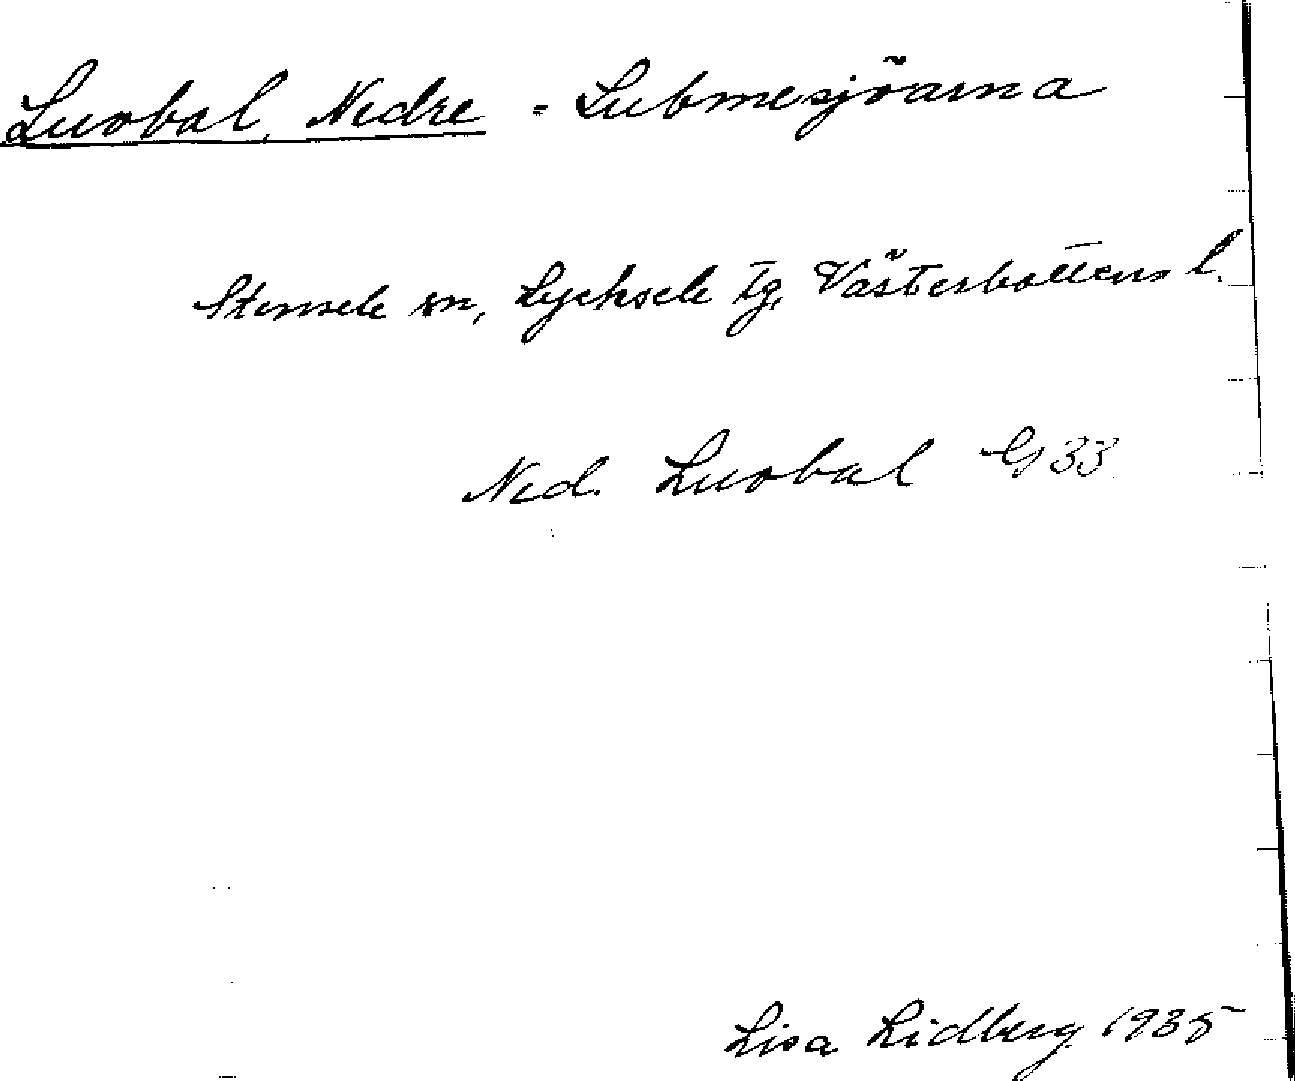 Luobal, Nedre = Lubmesjöarna
Stensele sn, Lycksele tg, Västerbottens l.
Ned. Luobal G 33
Lisa Lidberg 1935